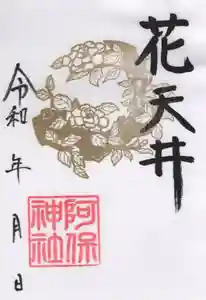 花天井
令和　年　月　日
阿保
神社